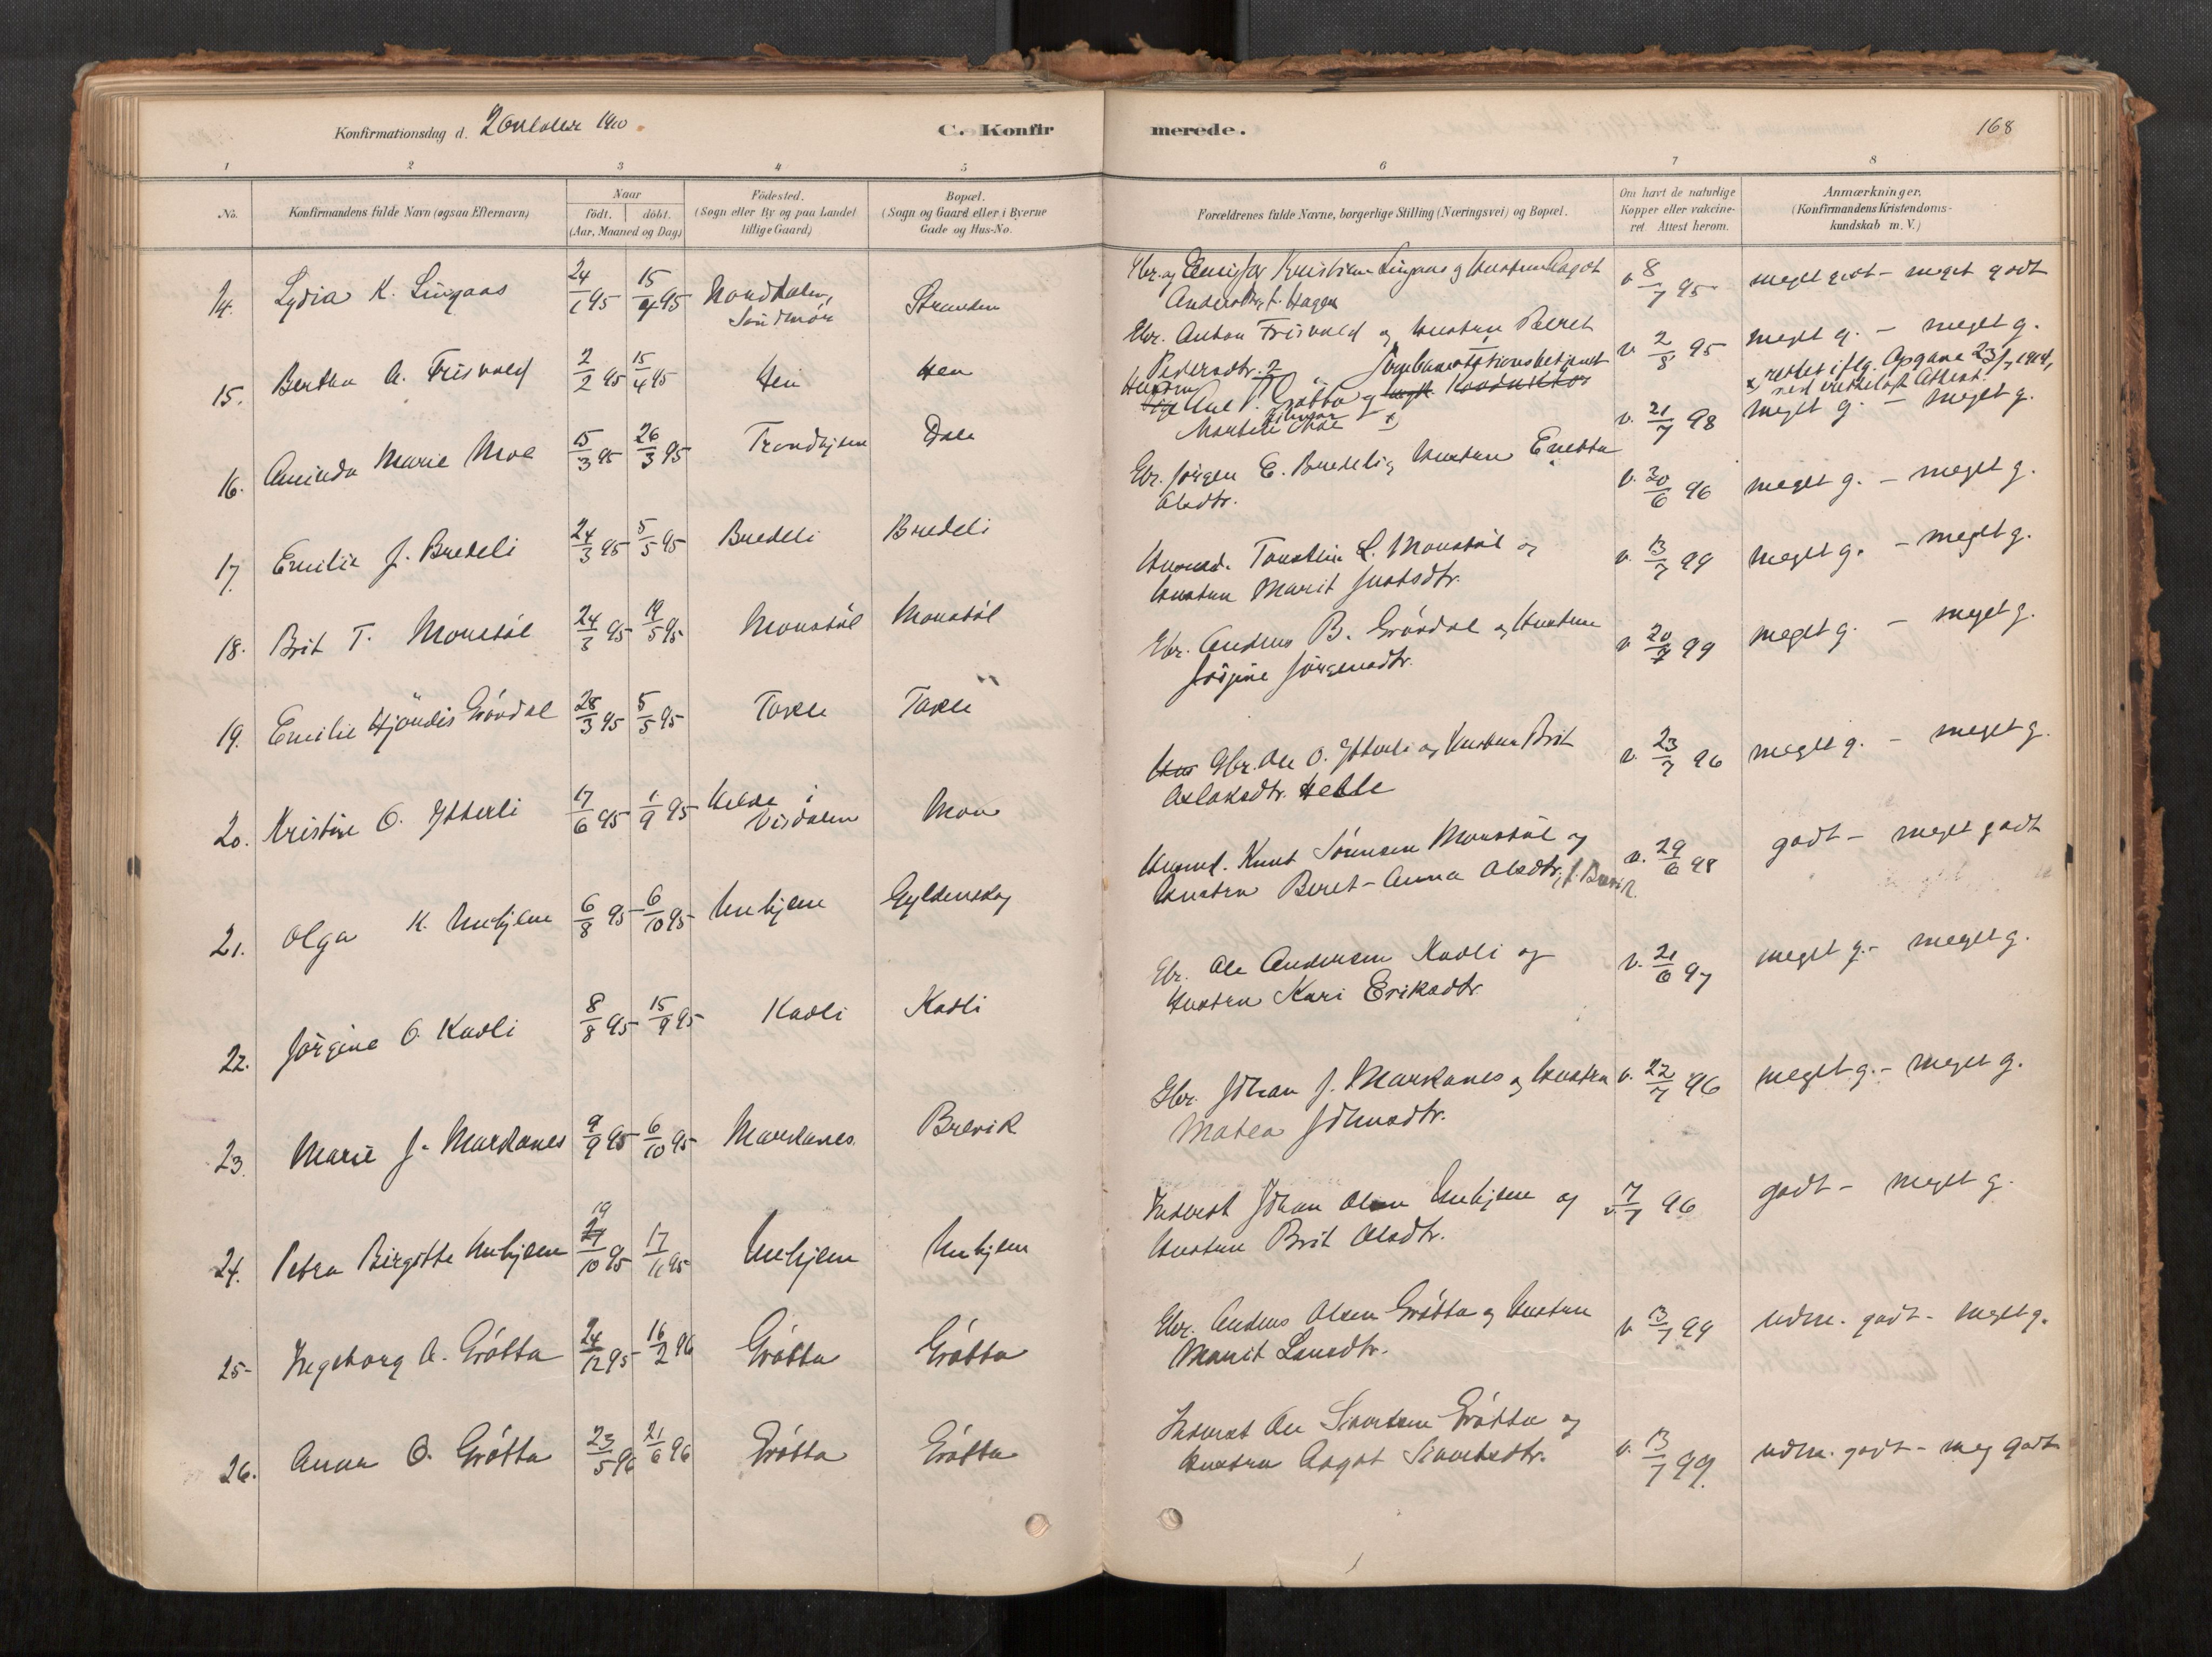 Konfirmationsdag d. 2 October 1910.
C. Konfirmerede.
168
1 2 3 4 5 6 7 8
No.
Konfirmandens fulde Navn (ogsaa Efternavn)
Naar
födt. döbt.
(Aar, Maaned og Dag)
Födested.
(Sogn eller By og paa Landet
tillige Gaard)
Bopæl.
(Sogn og Gaard eller i Byerne
Gade og Hus-No.
Forældrenes fulde Navne, borgerlige Stilling (Næringsvei) og Bopæl.
Om havt de naturlige
Kopper eller vakcine-
ret Attest herom.
Anmærkninger.
(Konfirmandens Kristendoms-
kundskab m. V.)
14. Lydia K. Lingaas 24/1 95 15/4 95 Norddalen, Söndmör Stranden
Gbr. og Kristian Lingaas og Hustru Aagot
Andersdtr. f. Hagen
v 8/7 95 meget godt - meget godt
15. Bertha A. Frisvold 2/2 95 15/4 95 Hen Hen
Gbr. Anton Frisvold og Hustru Beret
Pedersdtr.
v. 2/8 95 meget g. - meget g.
x, rettet iflg. Opgave 23/7 1914,
ved Attest.
16. Aminda Marie Moe 15/3 95 26/3 95 Trondhjem Dale
Grötta og Konduktör
Moe x,
v. 21/7 98 meget g. - meget g.
17. Emilie J. Bredeli 24/3 95 5/5 95 Bredeli Bredeli
Gbr. Jörgen E. Bredeli og Hustru
Olsdtr.
v. 20/6 96 meget g. - meget g.
18. Brit T. Monstöl 24/3 95 19/5 95 Monstöl Monstöl
Husmd. Torstein L. Monstöl og
Hustru Marit
v. 13/7 99 meget g. - meget g.
19. Emilie Hjördis Grövdal 28/3 95 5/5 95 Tokle Tokle
Gbr. Anders B. Grövdal og Hustru
Jörgine Jörgensdtr.
v 20/7 99 meget g. - meget g.
20. Kristine O. Ytterli 17/6 95 1/9 95 i Visdalen Mon
Gbr. Ole O. Ytterli og Hustru Brit
Aslaksdtr. Helle
v. 23/7 96 meget g. - meget g.
21. Olga K. Unhjem 6/8 95 6/10 95 Unhjem Gyldenskog
Husmd. Knut Sörensen Monstöl og
Hustru Beret-Anna Olsdtr.
v. 29/6 98 godt - meget godt
22. Jörgine O. Kavli 8/8 95 15/9 95 Kavli Kavli
Gbr. Ole Andersen Kavli og
Hustru Kari Eriksdtr.
v. 21/6 97 meget g. - meget g.
23. Marie J. Markanes 9/9 95 6/10 95 Markanes Brevik
Gbr. Johan J. Markanes og Hustru
Matea Johnsdtr.
v. 22/7 96 meget g. - meget g.
24. Petra Birgitte Unhjem 19/10 95 17/11 95 Unhjem Unhjem
Inderst Johan Olsen Unhjem og
Hustru Brit Olsdtr.
v. 7/7 96 godt - meget g.
25. Ingeborg A. Grötta 24/12 95 16/2 96 Grötta Grötta
Gbr. Anders Olsen Grötta og Hustru
Marit Larsdtr.
v 13/7 99 udm. godt - meget g.
26. Anna O. Grötta 23/5 96 21/6 96 Grötta Grötta
Inderst Ole Sivertsen Grötta og
Hustru Aagot Sivertsdtr.
v. 13/7 99. udm. godt - meg godt